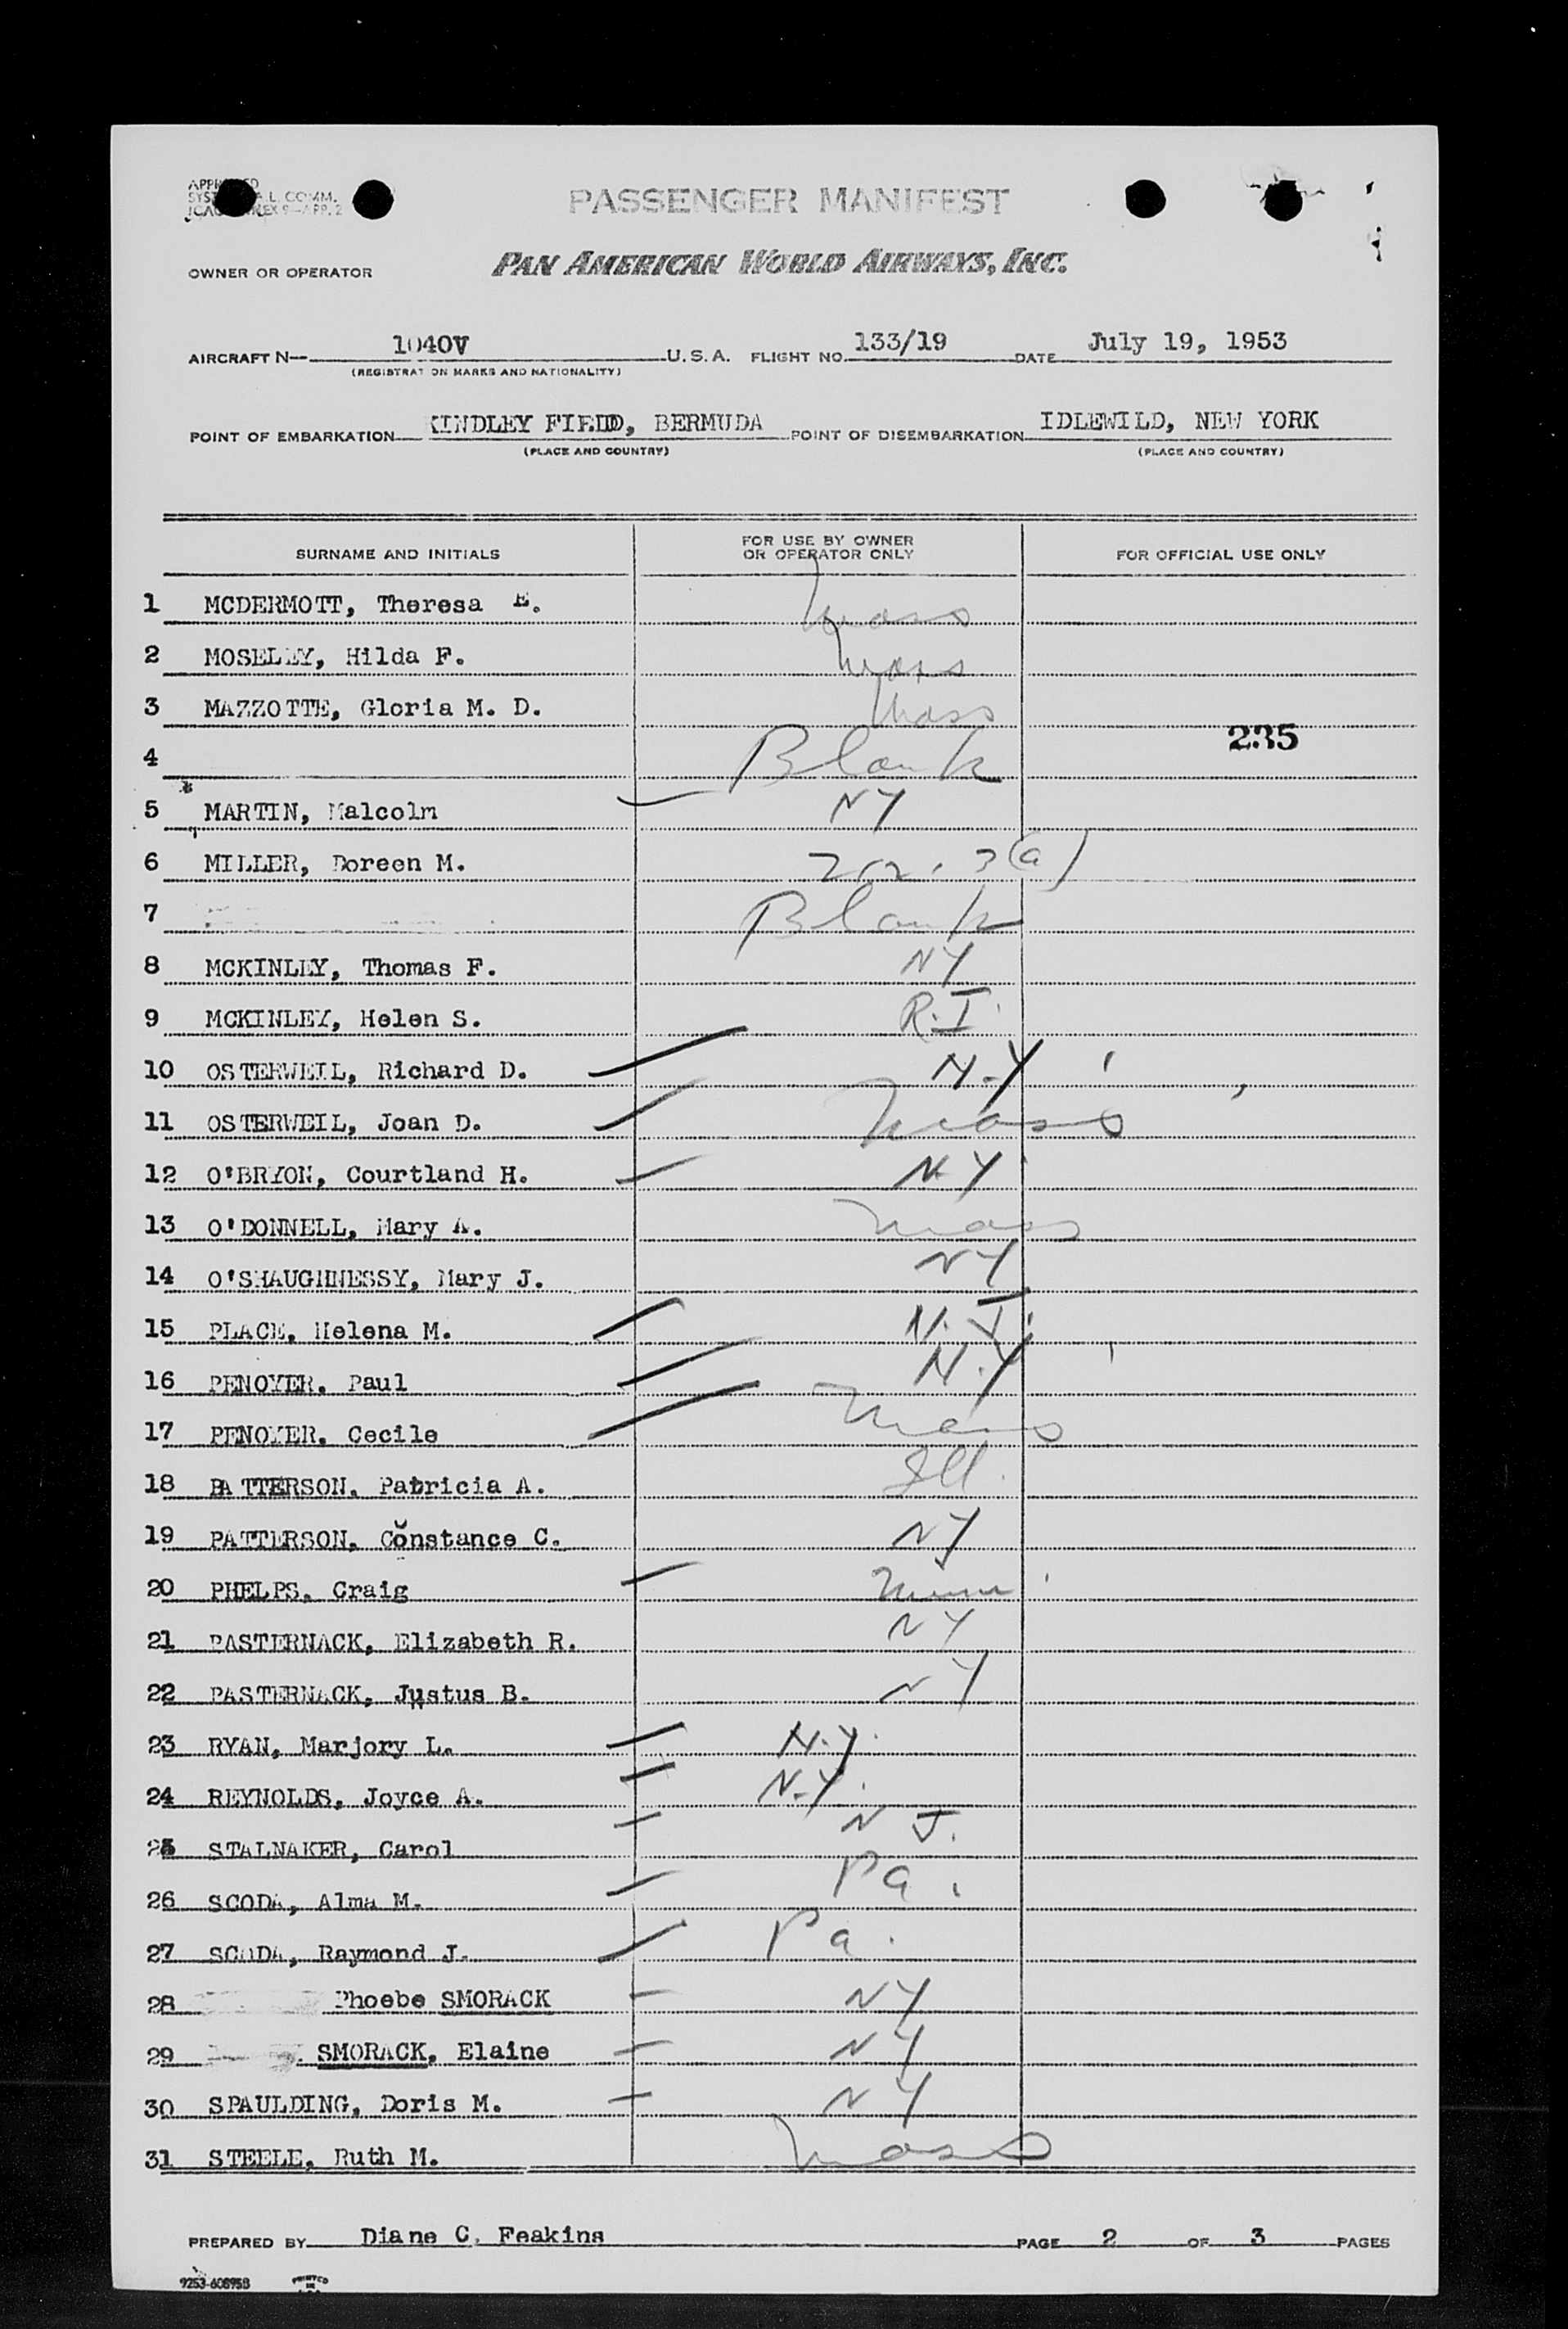 PASSENGER MANIFEST
OWNER OR OPERATOR PAN AMERICAN WORLD AIRWAYS, INC.
AIRCRAFT N— 1040V U.S.A. FLIGHT NO. 133/19 DATE July 19, 1953
(REGISTRATION MARKS AND NATIONALITY)
POINT OF EMBARKATION KINDLEY FIELD, BERMUDA POINT OF DISEMBARKATION IDLEWILD, NEW YORK
(PLACE AND COUNTRY) (PLACE AND COUNTRY)
SURNAME AND INITIALS FOR USE BY OWNER OR OPERATOR ONLY FOR OFFICIAL USE ONLY
1 MCDERMOTT, Theresa E. Mass
2 MOSELEY, Hilda F. Mass
3 MAZZOTTE, Gloria M. D. Mass
235
4 Blank
5 MARTIN, Malcolm NY
6 MILLER, Doreen M. 212.3(a)
7 Blank
8 MCKINLEY, Thomas F. NY
9 MCKINLEY, Helen S. R.I.
10 OSTERWEIL, Richard D. N.Y
11 OSTERWEIL, Joan D. Mass
12 O'BRYON, Courtland H. NY
13 O'DONNELL, Mary A. Mass
14 O'SHAUGHNESSY, Mary J. NY
15 PLACE, Helena M. N.J.
16 PENOYER. Paul N.Y
17 PENOYER. Cecile Mass
18 PATTERSON. Patricia A. Ill.
19 PATTERSON. Constance C. NY
20 PHELPS. Craig Minn
21 PASTERNACK, Elizabeth R. NY
22 PASTERNACK, Justus B. NY
23 RYAN, Marjory L. N.Y.
24 REYNOLDS, Joyce A. N.Y.
25 STALNAKER, Carol N J.
26 SCODA, Alma M. Pa.
27 SCODA, Raymond J. Pa.
28 Phoebe SMORACK NY
29 SMORACK, Elaine NY
30 SPAULDING, Doris M. NY
31 STEELE, Ruth M. Mass
PREPARED BY Diane C. Feakins PAGE 2 OF 3 PAGES
9253-608958 PRINTED IN